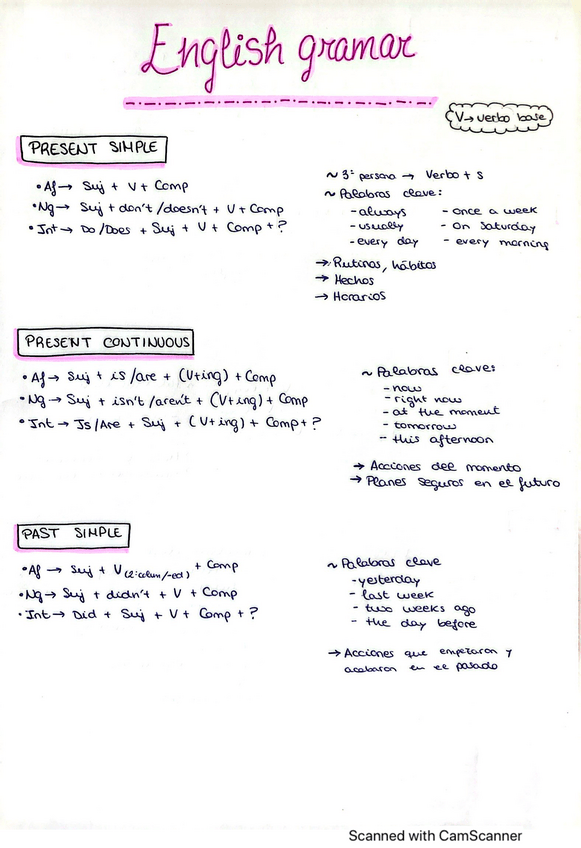 English gramar
V→ verbo base
PRESENT SIMPLE
• Af → Suj + V + Comp
• Ng → Suj + don't /doesn't + V + Comp
• Int → Do /Does + Suj + V + Comp + ?
~ 3ª persona → Verbo + S
~ Palabras clave:
- always
- usually
- every day
- once a week
- on Saturday
- every morning
→ Rutinas, hábitos
→ Hechos
→ Horarios
PRESENT CONTINUOUS
• Af → Suj + is /are + (V+ing) + Comp
• Ng → Suj + isn't /aren't + (V+ing) + Comp
• Int → Is/Are + Suj + (V+ing) + Comp + ?
~ Palabras clave:
- now
- right now
- at the moment
- tomorrow
- this afternoon
→ Acciones del momento
→ Planes seguros en el futuro
PAST SIMPLE
• Af → Suj + V (2ª colum/-ed) + Comp
• Ng → Suj + didn't + V + Comp
• Int → Did + Suj + V + Comp + ?
~ Palabras clave
- yesterday
- last week
- two weeks ago
- the day before
→ Acciones que empezaron y
acabaron en el pasado
Scanned with CamScanner